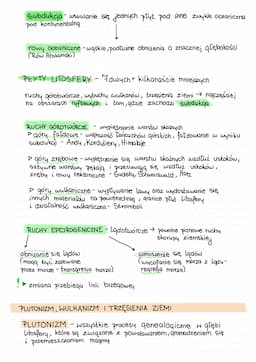 Subdukcja - wsuwanie się jednych płyt pod inne zwykle oceaniczna
pod kontynentalną
rowy oceaniczne - wąskie, podłużne obniżenia o znacznej głębokości
(Rów Atakamski)
PŁYTY LITOSFERY - 7 dużych + kilkanaście mniejszych
ruchy górotwórcze, wybuchy wulkanów, trzęsienia ziemi → najczęściej
na obszarach ryftowych i tam, gdzie zachodzi subdukcja
RUCHY GÓROTWÓRCZE - wypiętrzanie warstw skalnych
▷ góry fałdowe - wypiętrzanie łańcuchów górskich, fałdowanie w wyniku
subdukcji - Andy, Kordyliery, Himalaje
▷ góry zrębowe - wypiętrzanie się warstw skalnych wzdłuż uskoków,
sztywne warstwy pękają i przesuwają się wzdłuż uskoków,
zręby i rowy tektoniczne - Sudety, Schwarzwald, Harz
▷ góry wulkaniczne - wypływanie lawy oraz wydostawanie się
innych materiałów na powierzchnię, granice płyt litosfery
i działalność wulkaniczna - Stromboli
RUCHY EPEJROGENICZNE - lądotwórcze → powolne pionowe ruchy
skorupy ziemskiej
obniżanie się lądów
(mogą być zalewane
przez morze - transgresja morza)
podnoszenie się lądów
(wycofanie się morza z lądu -
regresja morza)
! → zmiana przebiegu linii brzegowej
PLUTONIZM, WULKANIZM I TRZĘSIENIA ZIEMI
PLUTONIZM - wszystkie procesy geologiczne w głębi
litosfery, które są związane z powstawaniem, gromadzeniem się
i przemieszczaniem magmy